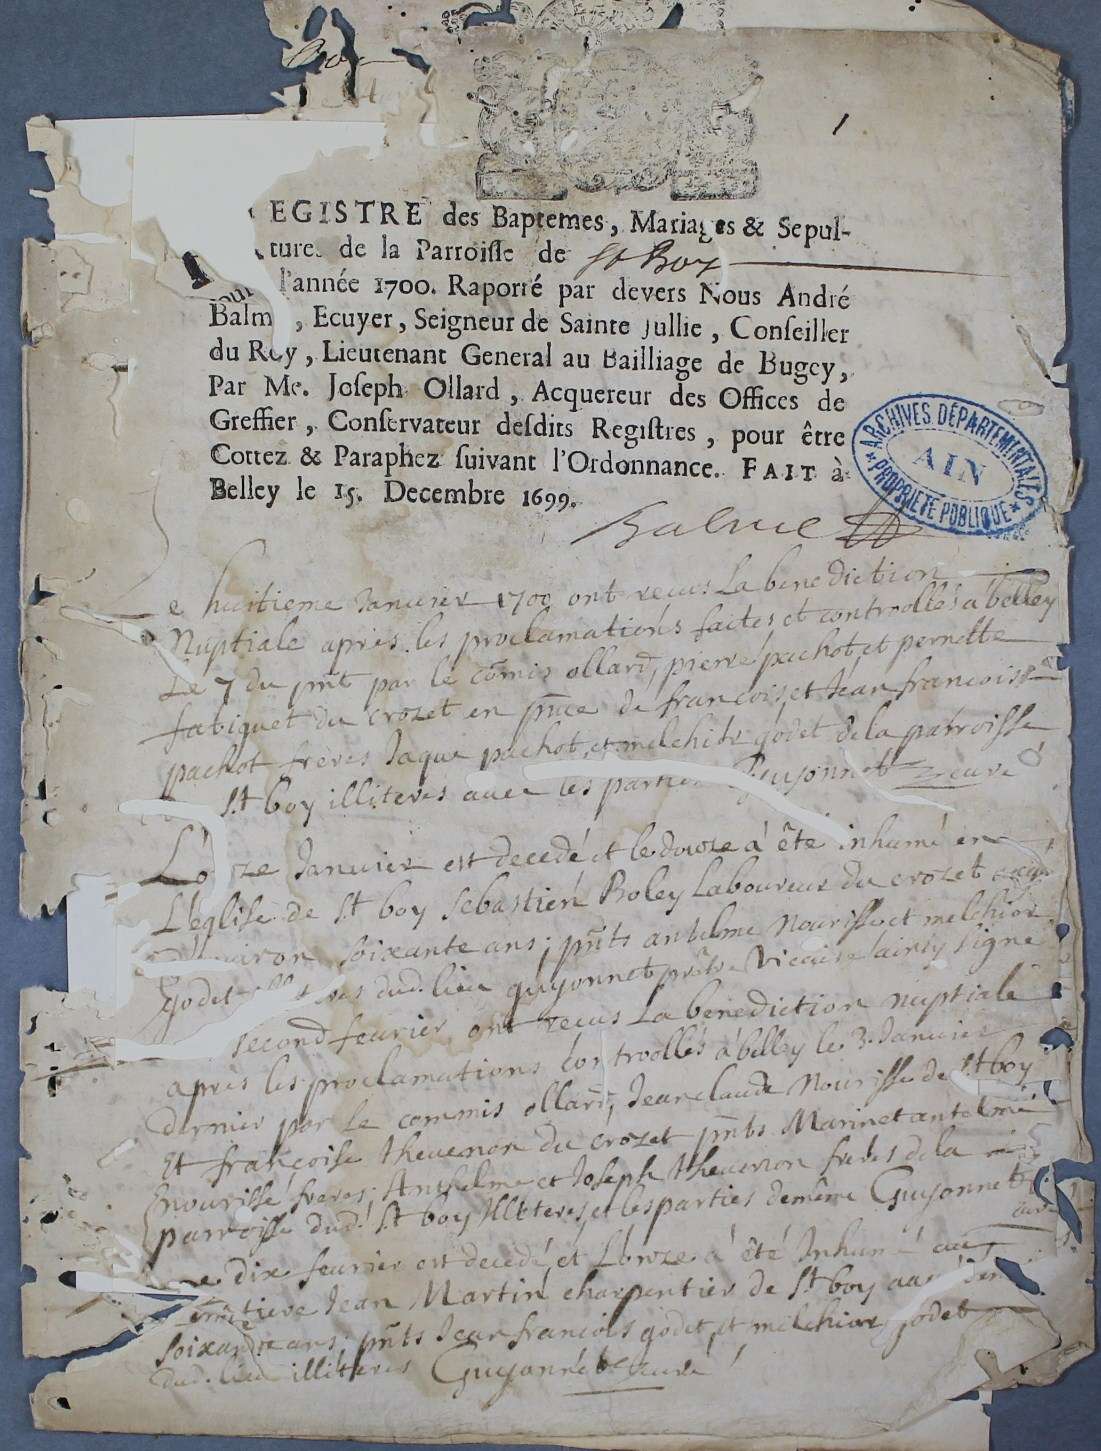 1
EGISTRE des Baptemes, Mariages & Sepul-
ture de la Parroisse de St Boy
pour l'année 1700. Raporté par devers Nous André
Balm, Ecuyer, Seigneur de Sainte Jullie, Conseiller
du Roy, Lieutenant General au Bailliage de Bugey,
Par Me. Joseph Ollard, Acquereur des Offices de
Greffier, Conservateur desdits Registres, pour être
Cottez & Paraphez suivant l'Ordonnance. FAIT à
Belley le 15. Decembre 1699.
ARCHIVES DÉPARTEMENTALES
AIN
PROPRIÉTÉ PUBLIQUE
Balme
Le huitieme Januier 1700 ont recus La benediction
Nuptiale apres les proclamations faites et controllés a belley
Le 7 du pnt par le comis ollard, pierre pachot et pernette
fabiquet du crozet en pnce de francois, et Jean francois
pachot freres Jaque pachot et melchior godet de la parroisse
St boy illiteres auec les parties Guyonnet curé
L'onze Januier est decedé et le douze a été inhumé en
L'eglise de St boy Sebastien Roley Laboureur du crozet
d'enuiron soixante ans; pnts antelme Nourisse et melchior
godet dud. lieu guyonnet prêtre Vicaire ainsy signé
second feurier ont recus La benediction nuptiale
apres les proclamations controllés a belley le 3. Januier
dernier par le commis ollard, Jean claude Nourisse de St boy
Et françoise theuenon du crozet pnts. Marin et antelme
nourisse freres; Anthelme et Joseph theuenon freres de la
parroisse dud. St boy Illiteres et les parties de même Guyonnet
curé
Le dix feurier est decedé, et L'onze a été Inhumé au
cemetiere Jean Martin charpentier de St boy
soixante ans pnts Jean francois godet et melchior godet
dud. lieu illiteres Guyonnet curé